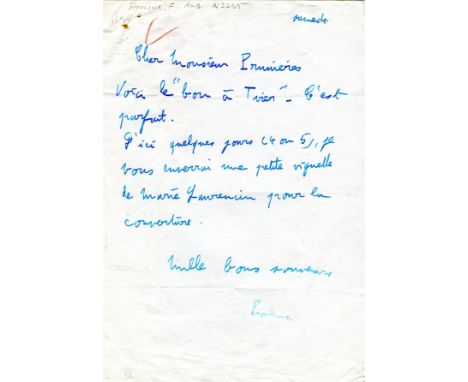 Poulenc F ALS N2265
samedi
Cher Monsieur Prunières
Voici le "bon à Tirer" - C'est
parfait.
D'ici quelques jours (4 ou 5), je
vous enverrai une petite vignette
de Marie Laurencin pour la
couverture.
Mille bons souvenirs
Poulenc